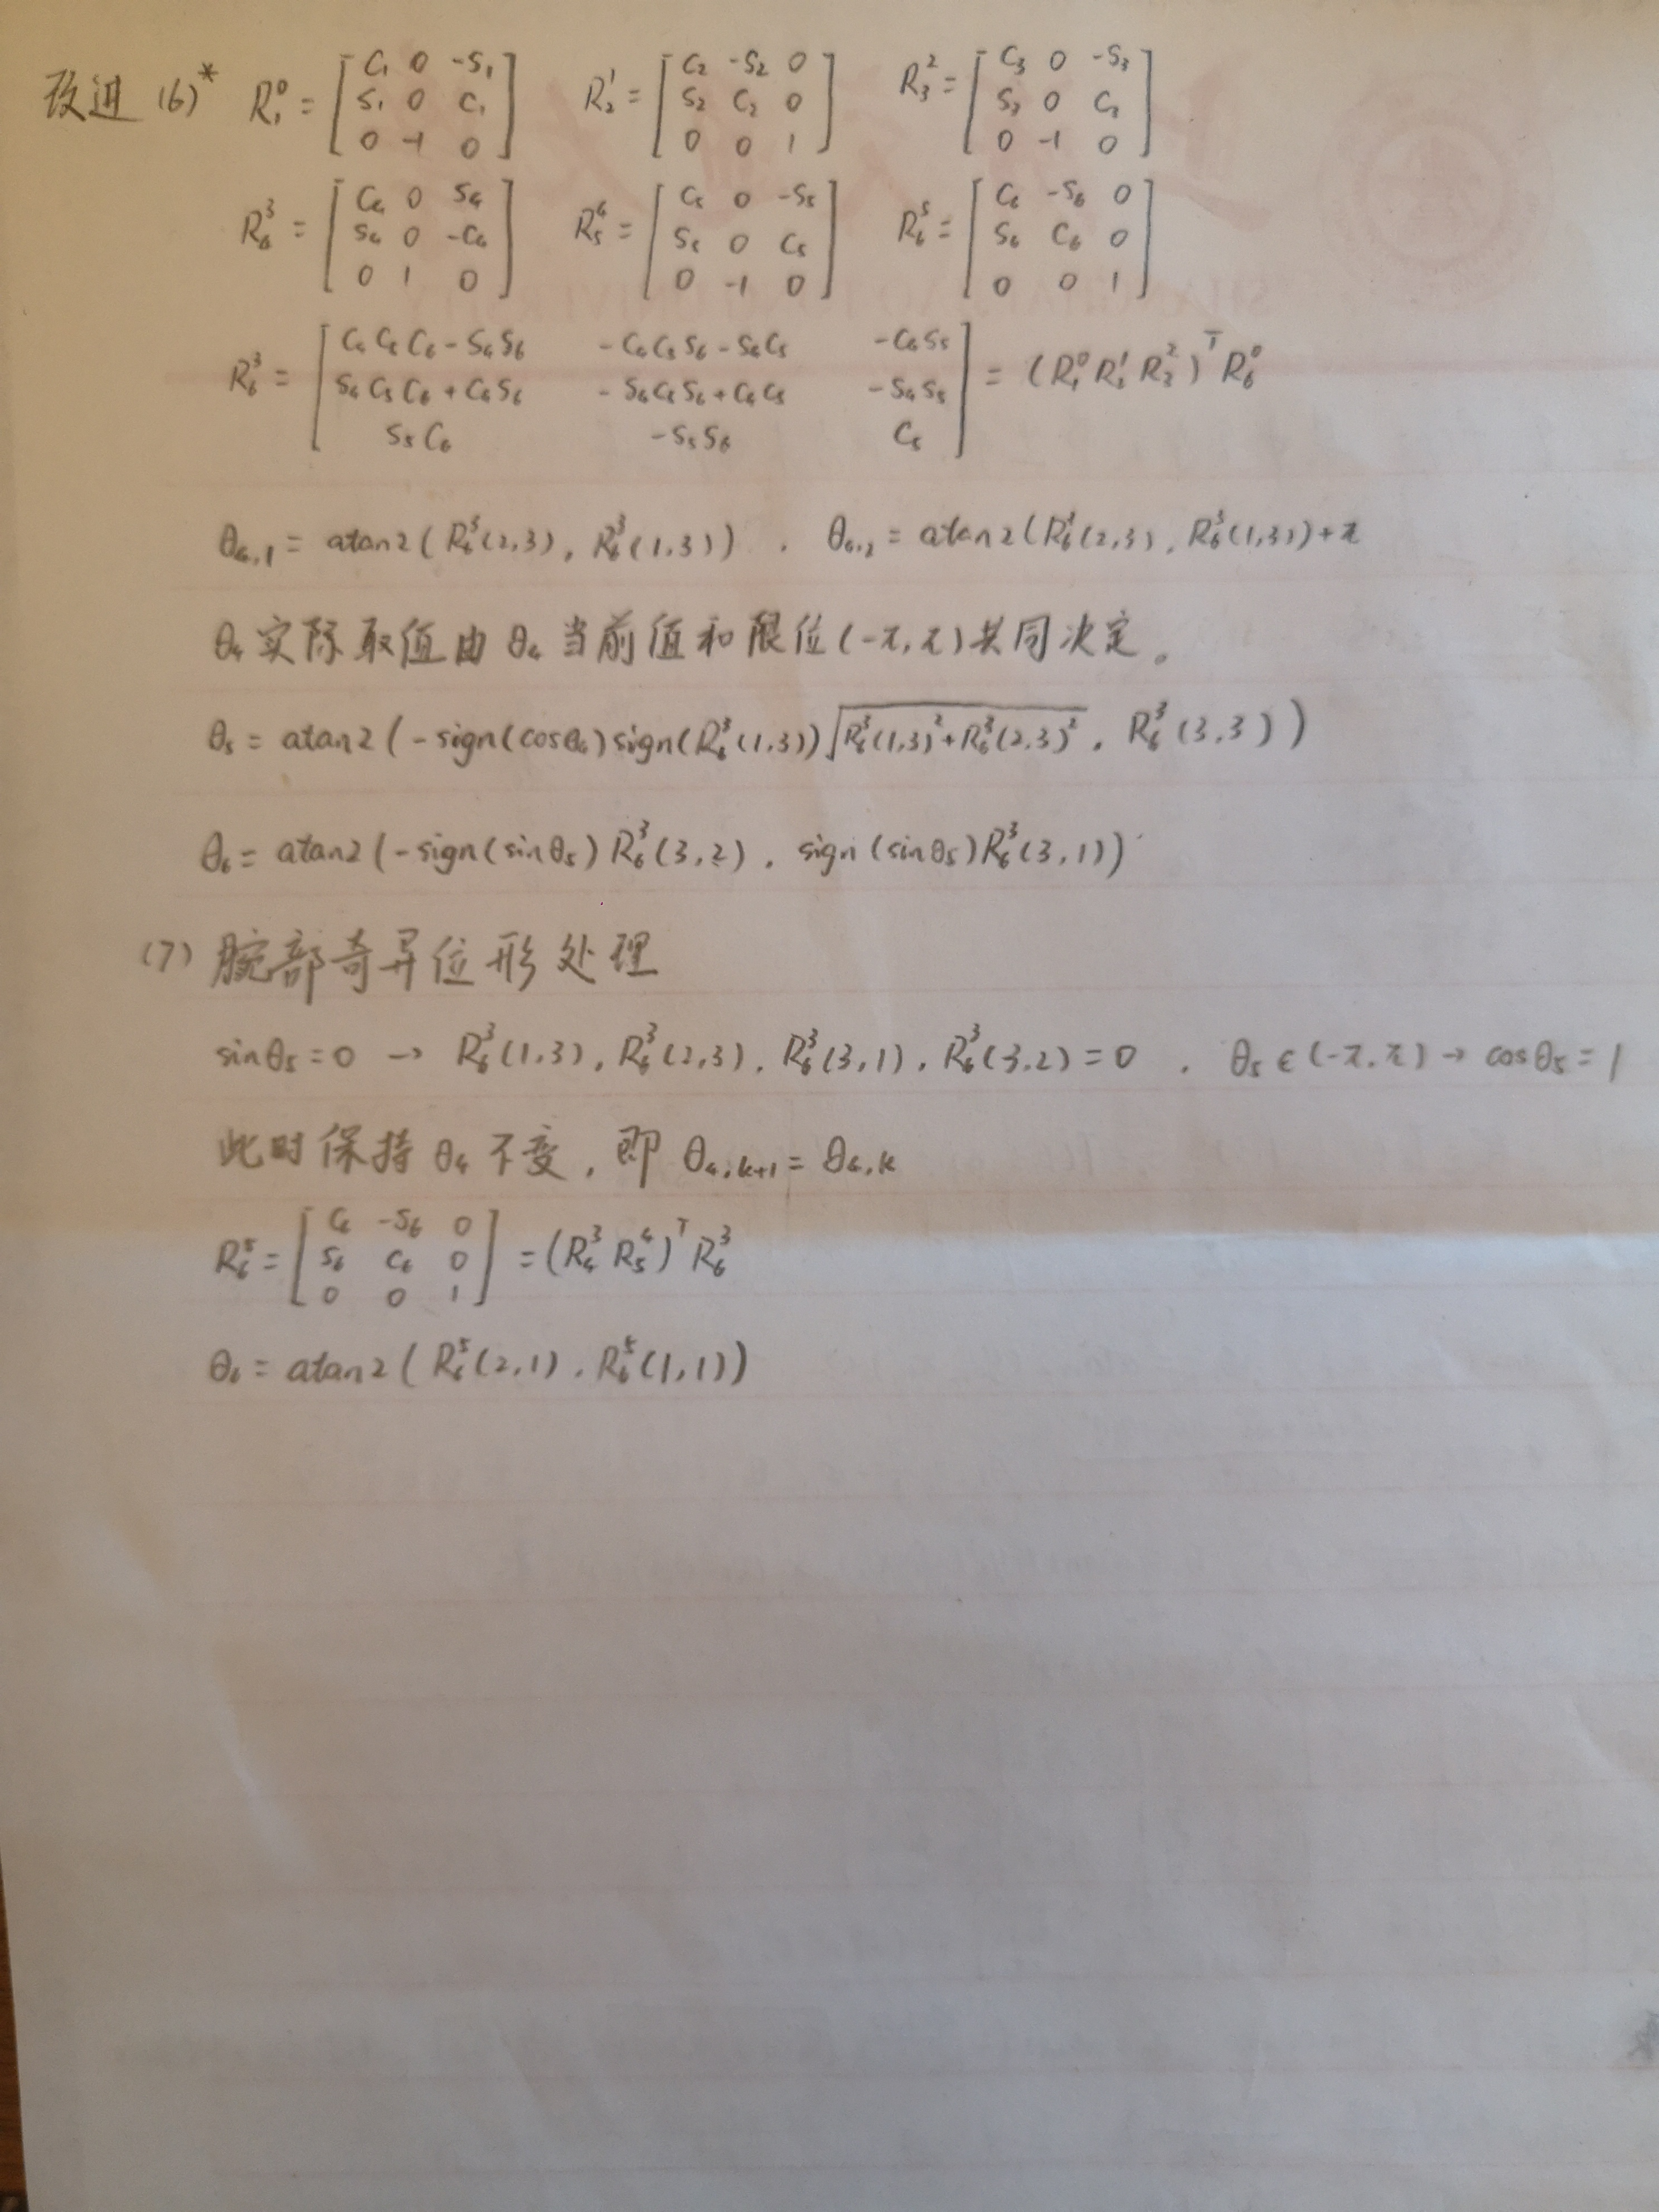 改进 (6)* R₁⁰ = [C₁ 0 -S₁; S₁ 0 C₁; 0 -1 0] R₂¹ = [C₂ -S₂ 0; S₂ C₂ 0; 0 0 1] R₃² = [C₃ 0 -S₃; S₃ 0 C₃; 0 -1 0]
R₄³ = [C₄ 0 S₄; S₄ 0 -C₄; 0 1 0] R₅⁴ = [C₅ 0 -S₅; S₅ 0 C₅; 0 -1 0] R₆⁵ = [C₆ -S₆ 0; S₆ C₆ 0; 0 0 1]
R₆³ = [C₄C₅C₆ - S₄S₆ -C₄C₅S₆ - S₄C₅ -C₄S₅; S₄C₅C₆ + C₄S₆ -S₄C₅S₆ + C₄C₅ -S₄S₅; S₅C₆ -S₅S₆ C₅] = (R₁⁰ R₂¹ R₃²)ᵀ R₆⁰
θ₄,₁ = atan2(R₆³(2,3), R₆³(1,3)) , θ₄,₂ = atan2(R₆³(2,3), R₆³(1,3)) + π
θ₄实际取值由θ₄当前值和限位(-π,π)共同决定。
θ₅ = atan2(-sign(cosθ₄)sign(R₆³(1,3))√(R₆³(1,3)²+R₆³(2,3)²), R₆³(3,3))
θ₆ = atan2(-sign(sinθ₅)R₆³(3,2), sign(sinθ₅)R₆³(3,1))
(7) 腕部奇异位形处理
sinθ₅=0 → R₆³(1,3), R₆³(2,3), R₆³(3,1), R₆³(3,2)=0 , θ₅∈(-π,π) → cosθ₅=1
此时保持θ₄不变, 即 θ₄,ₖ₊₁ = θ₄,ₖ
R₆⁵ = [C₆ -S₆ 0; S₆ C₆ 0; 0 0 1] = (R₄³ R₅⁴)ᵀ R₆³
θ₆ = atan2(R₆⁵(2,1), R₆⁵(1,1))